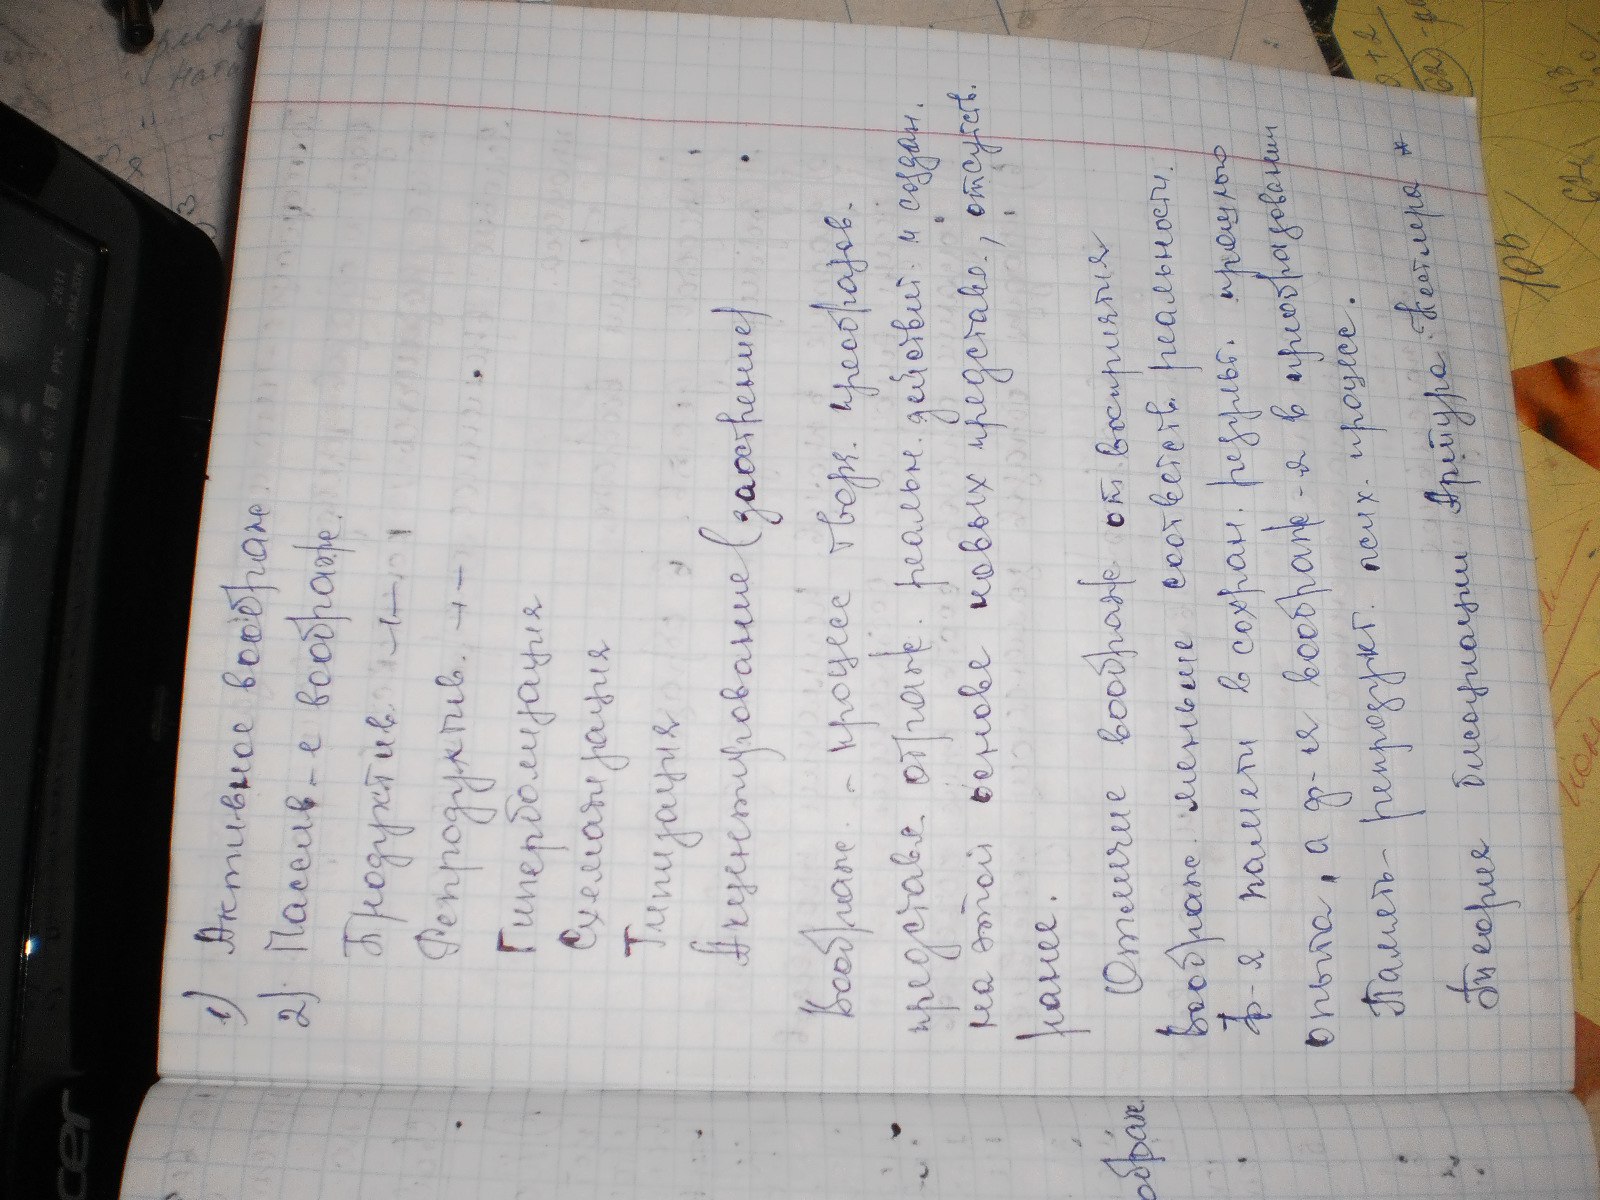 1) Активное воображ.
2) Пассив-е воображ.
Продуктив. –//–
Репродуктив. –//–
Гиперболизация
Схематизация
Типизация
Акцентирование (заострение)
Воображ. - процесс творч. преобразов.
представл. отраж. реальн. действит. и создан.
на этой основе новых представл., отсутств.
ранее.
Отличие воображ. от восприятия
воображ. меньше соответств. реальности.
Ф-я памяти в сохран. результ. прошлого
опыта, а ф-я воображ-я в приобразовании
Память - репродукт. псих. процесс.
Теория бисоциации Артура Кестлера *
ображ.
cer